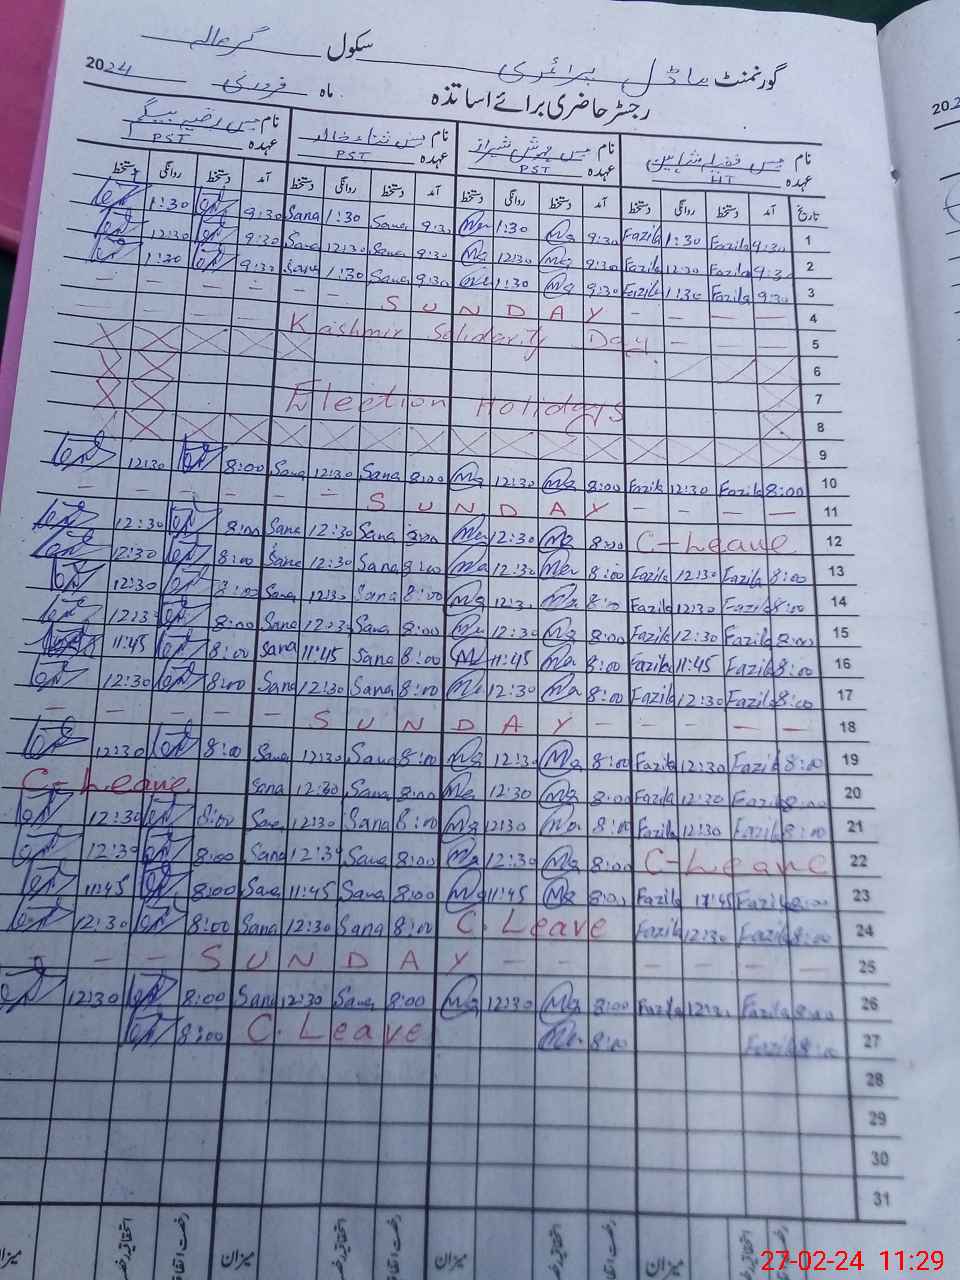 گورنمنٹ ماڈل پرائمری سکول گرھالہ
رجسٹر حاضری برائے اساتذہ ماہ فروری 2024
نام مس فضیلہ شاہین نام مس مہوش شیراز نام مس ثناء خالد نام مس رضیہ بیگم
عہدہ HT عہدہ PST عہدہ PST عہدہ PST
تاریخ آمد دستخط روانگی دستخط آمد دستخط روانگی دستخط آمد دستخط روانگی دستخط آمد دستخط روانگی دستخط
1 9:30 Fazila 1:30 Fazila 9:30 Ma 1:30 Ma 9:30 Sana 1:30 Sana 9:30 1:30
2 9:30 Fazila 12:30 Fazila 9:30 Ma 12:30 Ma 9:30 Sana 12:30 Sana 9:30 12:30
3 9:30 Fazila 1:30 Fazila 9:30 Ma 1:30 Ma 9:30 Sana 1:30 Sana 9:30 1:30
4 SUNDAY
5 Kashmir Solidarity Day
6
7 Election Holidays
8
9
10 8:00 Fazila 12:30 Fazila 8:00 Ma 12:30 Ma 8:00 Sana 12:30 Sana 8:00 12:30
11 SUNDAY
12 C-Leave 8:00 Ma 12:30 Ma 8:00 Sana 12:30 Sana 8:00 12:30
13 8:00 Fazila 12:30 Fazila 8:00 Ma 12:30 Ma 8:00 Sana 12:30 Sana 8:00 12:30
14 8:00 Fazila 12:30 Fazila 8:00 Ma 12:3 Ma 8:00 Sana 12:30 Sana 8:00 12:30
15 8:00 Fazila 12:30 Fazila 8:00 Ma 12:30 Ma 8:00 Sana 12:30 Sana 8:00 12:30
16 8:00 Fazila 11:45 Fazila 8:00 Ma 11:45 Ma 8:00 Sana 11:45 Sana 8:00 11:45
17 8:00 Fazila 12:30 Fazila 8:00 Ma 12:30 Ma 8:00 Sana 12:30 Sana 8:00 12:30
18 SUNDAY
19 8:00 Fazila 12:30 Fazila 8:00 Ma 12:30 Ma 8:00 Sana 12:30 Sana 8:00 12:30
20 8:00 Fazila 12:30 Fazila 8:00 Ma 12:30 Ma 8:00 Sana 12:30 Sana C-Leave
21 8:00 Fazila 12:30 Fazila 8:00 Ma 12:30 Ma 8:00 Sana 12:30 Sana 8:00 12:30
22 C-Leave 8:00 Ma 12:30 Ma 8:00 Sana 12:30 Sana 8:00 12:30
23 8:00 Fazila 11:45 Fazila 8:00 Ma 11:45 Ma 8:00 Sana 11:45 Sana 8:00 11:45
24 8:00 Fazila 12:30 Fazila C. Leave 8:00 Sana 12:30 Sana 8:00 12:30
25 SUNDAY
26 8:00 Fazila 12:30 Fazila 8:00 Ma 12:30 Ma 8:00 Sana 12:30 Sana 8:00 12:30
27 8:00 Fazila 8:00 Ma C. Leave 8:00
28
29
30
31
میزان میزان میزان
27-02-24 11:29